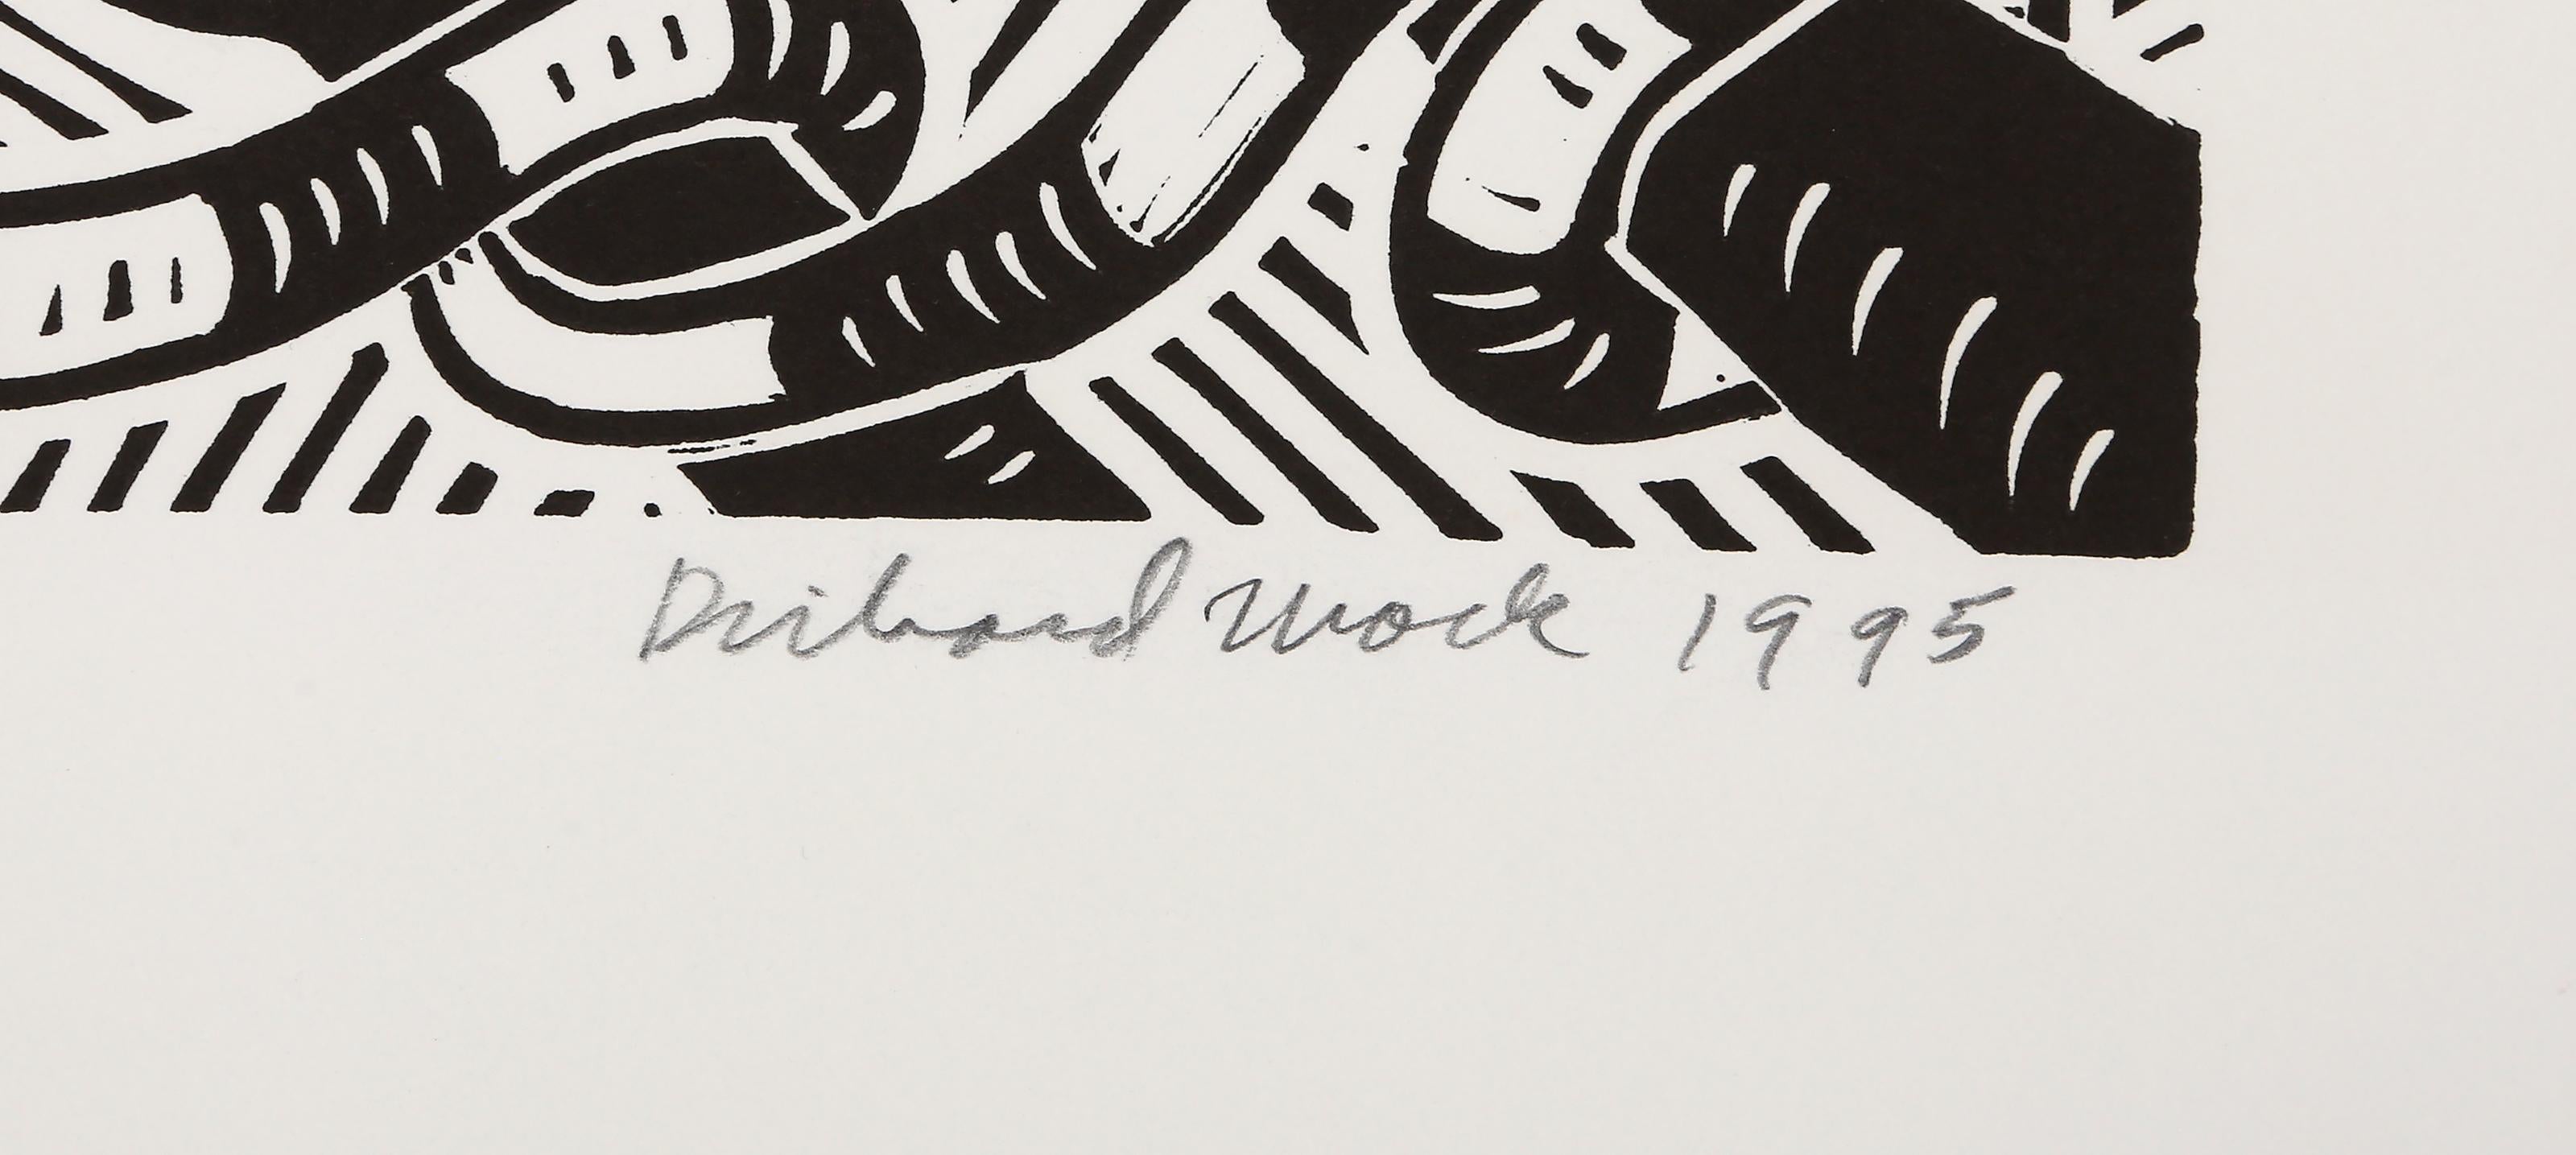 Richard Mock 1995